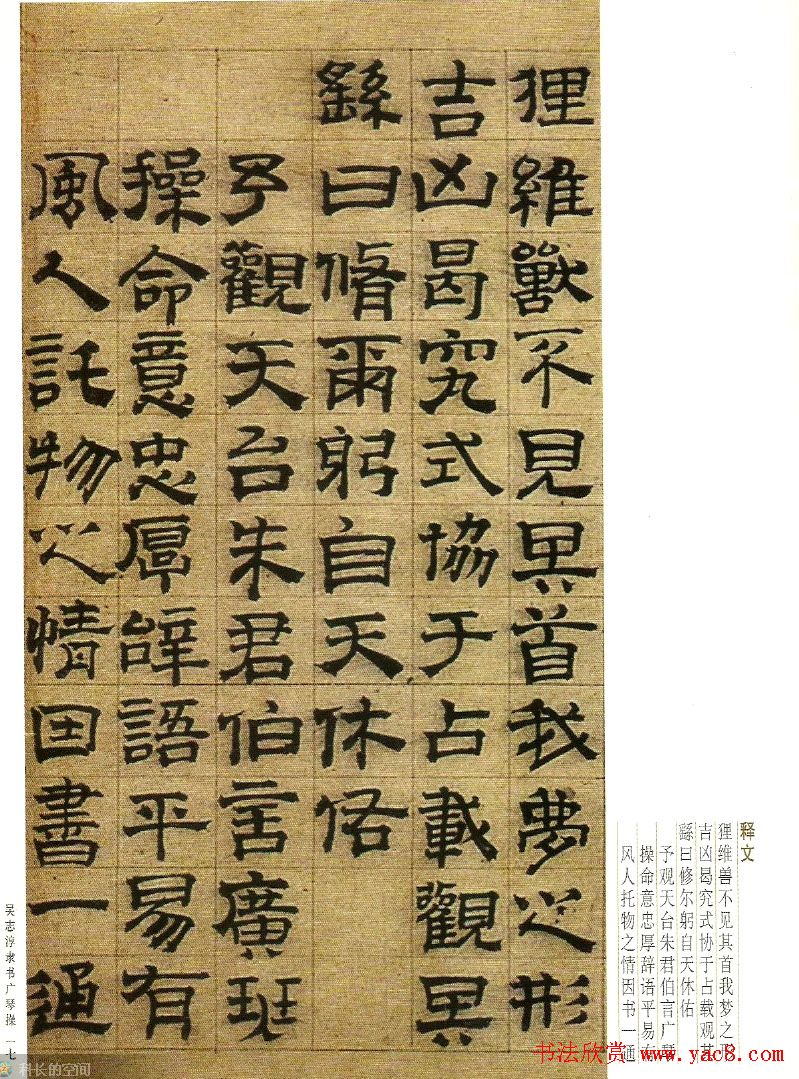 狸維獸不見其首我夢之形
吉凶曷究式協于占載觀其
繇曰脩爾躬自天休佑
予觀天台朱君伯言廣琴
操命意忠厚辭語平易有
風人託物之情因書一通
释文
狸维兽不见其首我梦之形
吉凶曷究式协于占载观其
繇曰修尔躬自天休佑
予观天台朱君伯言广琴
操命意忠厚辞语平易有
风人托物之情因书一通
吴志淳隶书广琴操 一七
书法欣赏 www.yac8.com
科长的空间